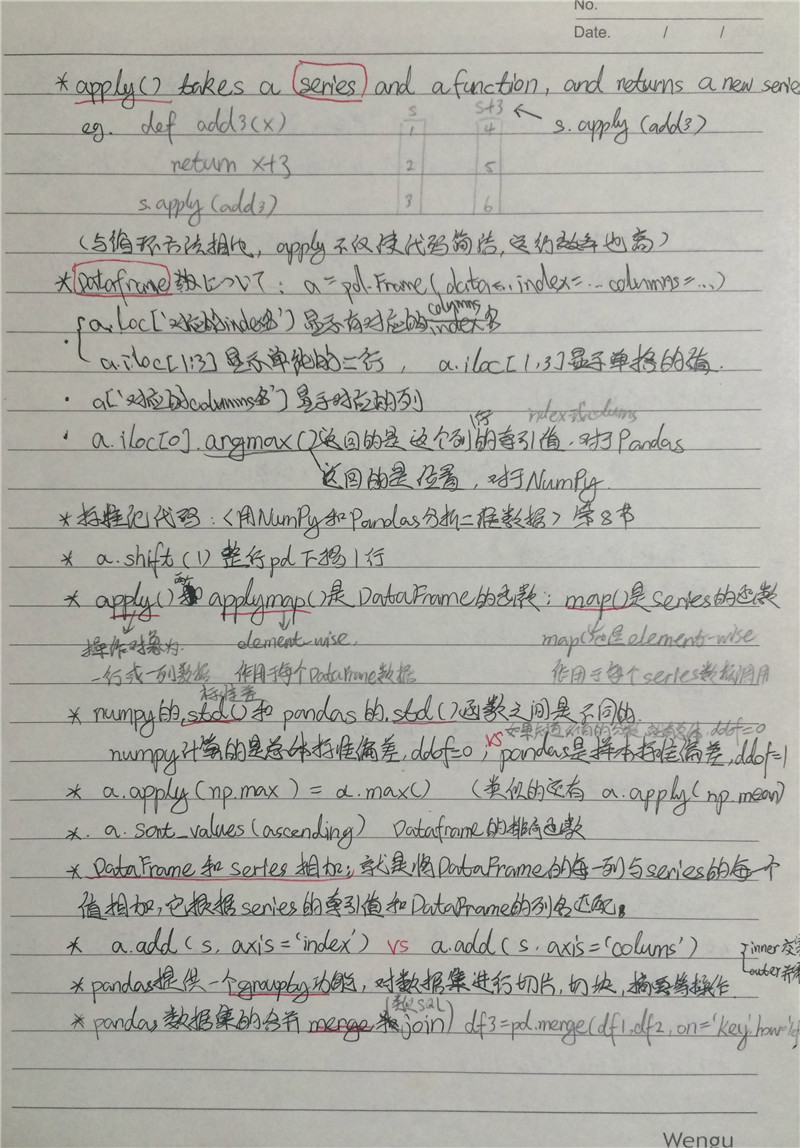 No.
Date. / /
* apply() takes a series and a function, and returns a new serie
eg. def add3(x) s s+3 ← s.apply(add3)
1 4
return x+3 2 5
s.apply(add3) 3 6
(与循环方法相比, apply不仅使代码简洁, 运行效率也高)
* Dataframe 数について: a = pd.Frame(data=.., index=... columns=...)
{ a.loc['对应的index名'] 显示有对应的 columns 名
a.iloc[1:3] 显示单独的二行, a.iloc[1,3] 显示单独的值.
· a['对应的columns名'] 显示对应的列
index或colums
· a.iloc[0].argmax() 返回的是这个列/行的索引值. 对于Pandas
返回的是位置, 对于NumPy.
* 标准化代码:<用NumPy和Pandas分析二维数据> 第8节
* a.shift(1) 整行pd下移1行
* apply() applymap()是DataFrame的函数; map()是series的函数
操作对象为 element-wise, map()后是element-wise
一行或一列数据 作用于每个DataFrame数据 作用于每个series数据调用
标准差
* numpy的.std()和pandas的.std()函数之间是不同的.
ddof=0
numpy计算的是总体标准偏差, ddof=0, vs pandas是样本标准偏差, ddof=1
* a.apply(np.max) = a.max() (类似的还有 a.apply(np.mean)
*. a.sort_values(ascending) Dataframe的排序函数
* DataFrame和series相加: 就是将DataFrame的每一列与series的每一个
值相加, 它根据series的索引值和DataFrame的列名匹配.
* a.add(s, axis='index') vs a.add(s, axis='colums') { inner
outer
* pandas提供一个groupby功能, 对数据集进行切片, 切块, 摘要等操作.
(类似SQL
* pandas 数据集的合并 merge join) df3=pd.merge(df1,df2,on='key',how=
Wengu